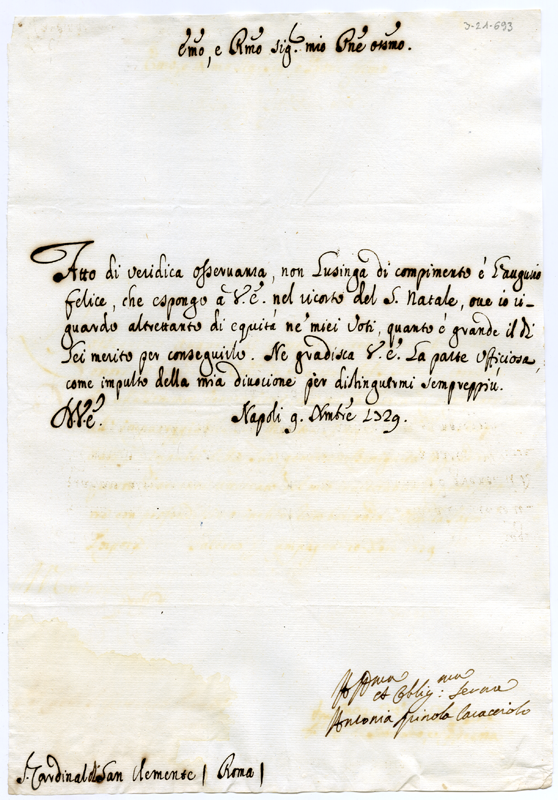 J-21-693
Emo, e Rmo sig.r mio Pne ossmo.
Atto di veridica osseruanza, non Lusinga di compimento é L'augurio
felice, che espongo à V.E. nel ricorso del S. Natale, oue io ri-
guardo altrettanto di equità ne' miei voti, quanto é grande il di
Lei merito per conseguirlo. Ne gradisca V.E. La parte Ufficiosa,
come impulso della mia diuozione per distinguermi sempreppiù.
D.V.E. Napoli 9. Xmbre 1729.
et Oblig.ma Serua
Antonia Spinola Caracciolo
S. Cardinal di San Clemente | Roma |